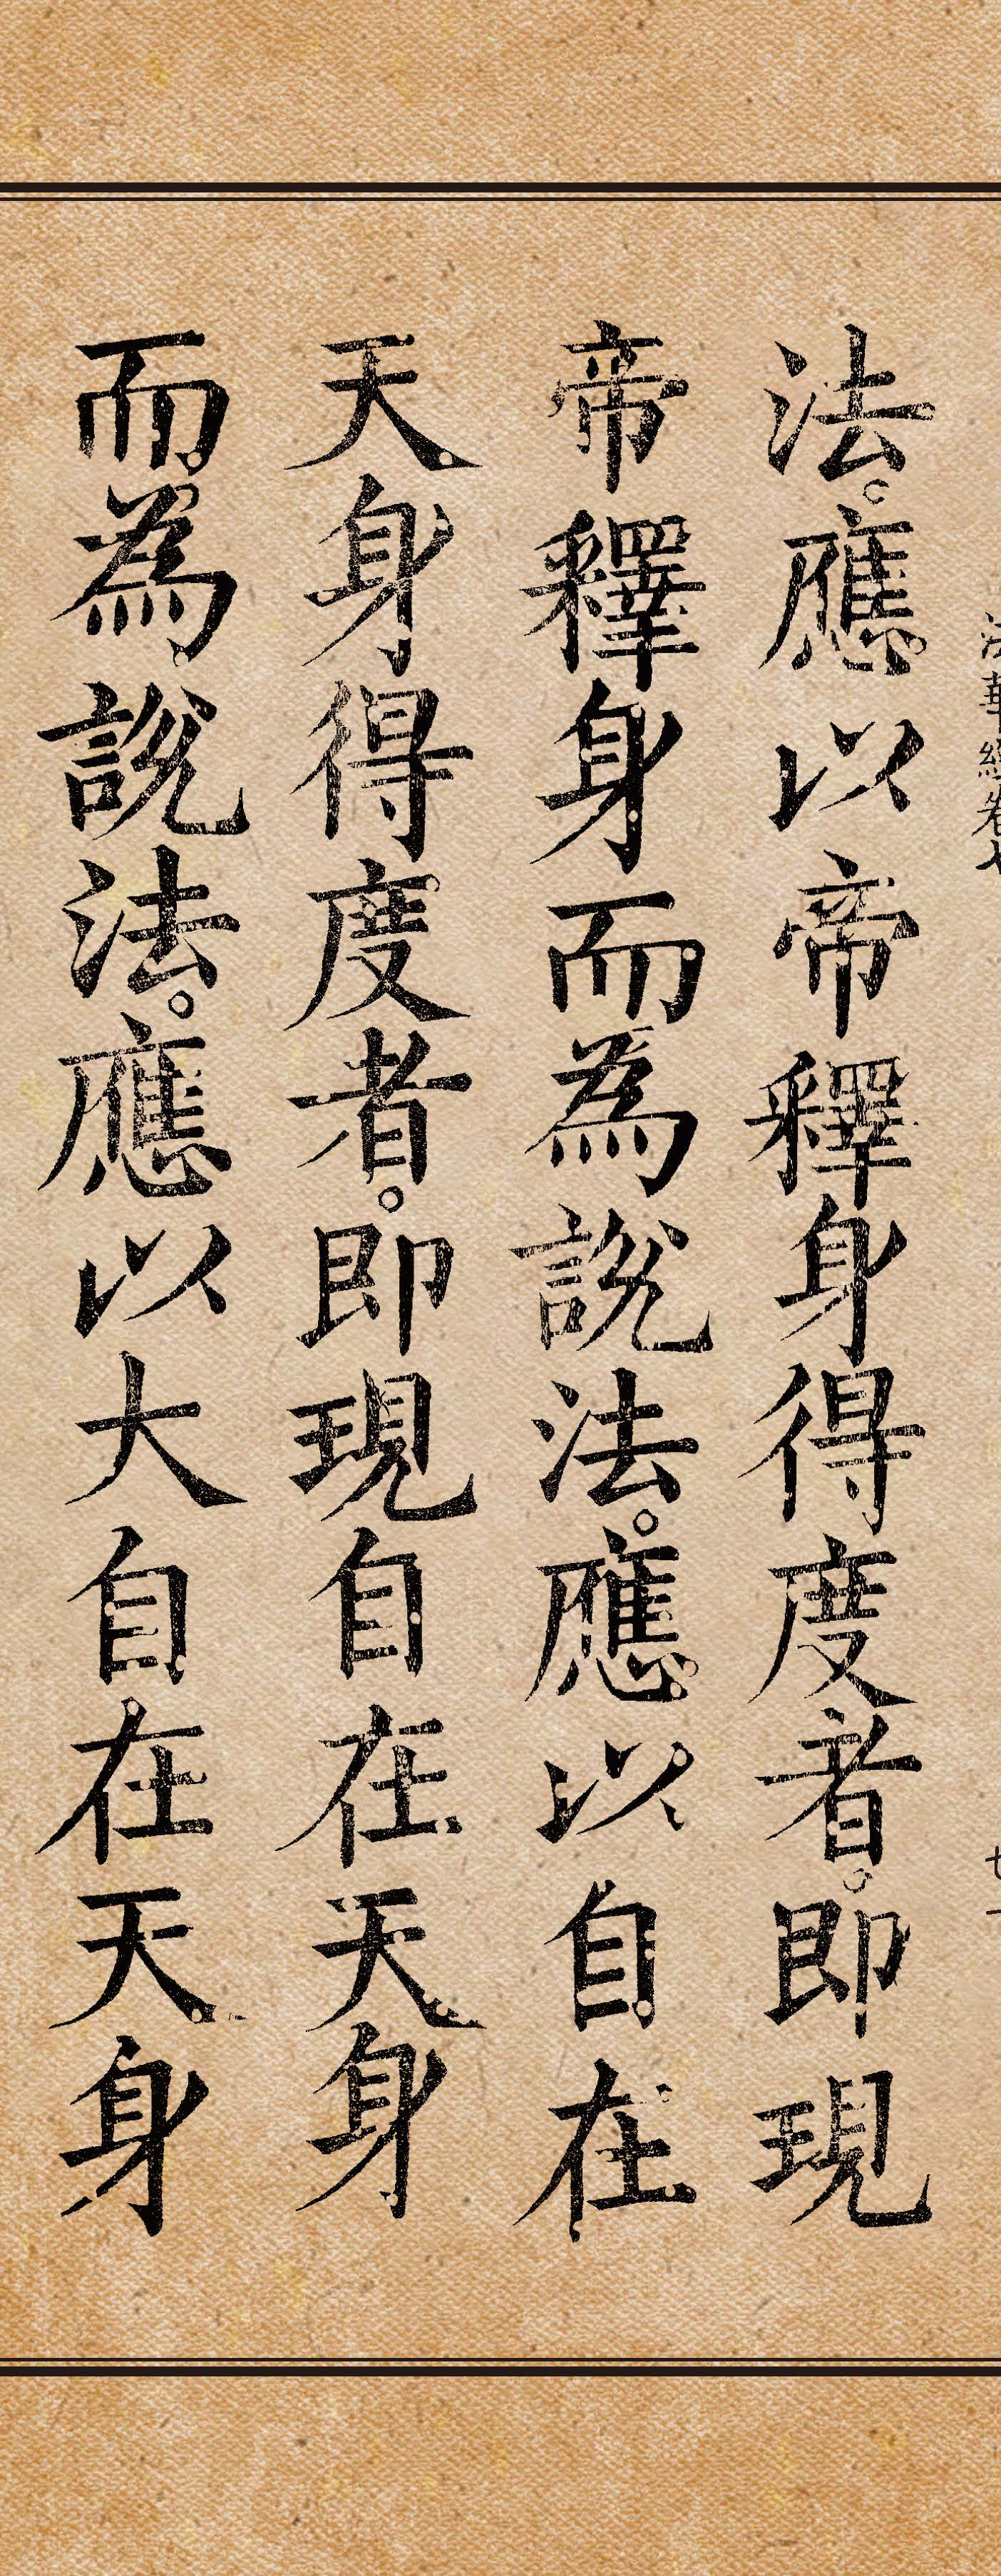 法華經卷七
法。應以帝釋身得度者。即現
帝釋身而為說法。應以自在
天身得度者。即現自在天身
而為說法。應以大自在天身